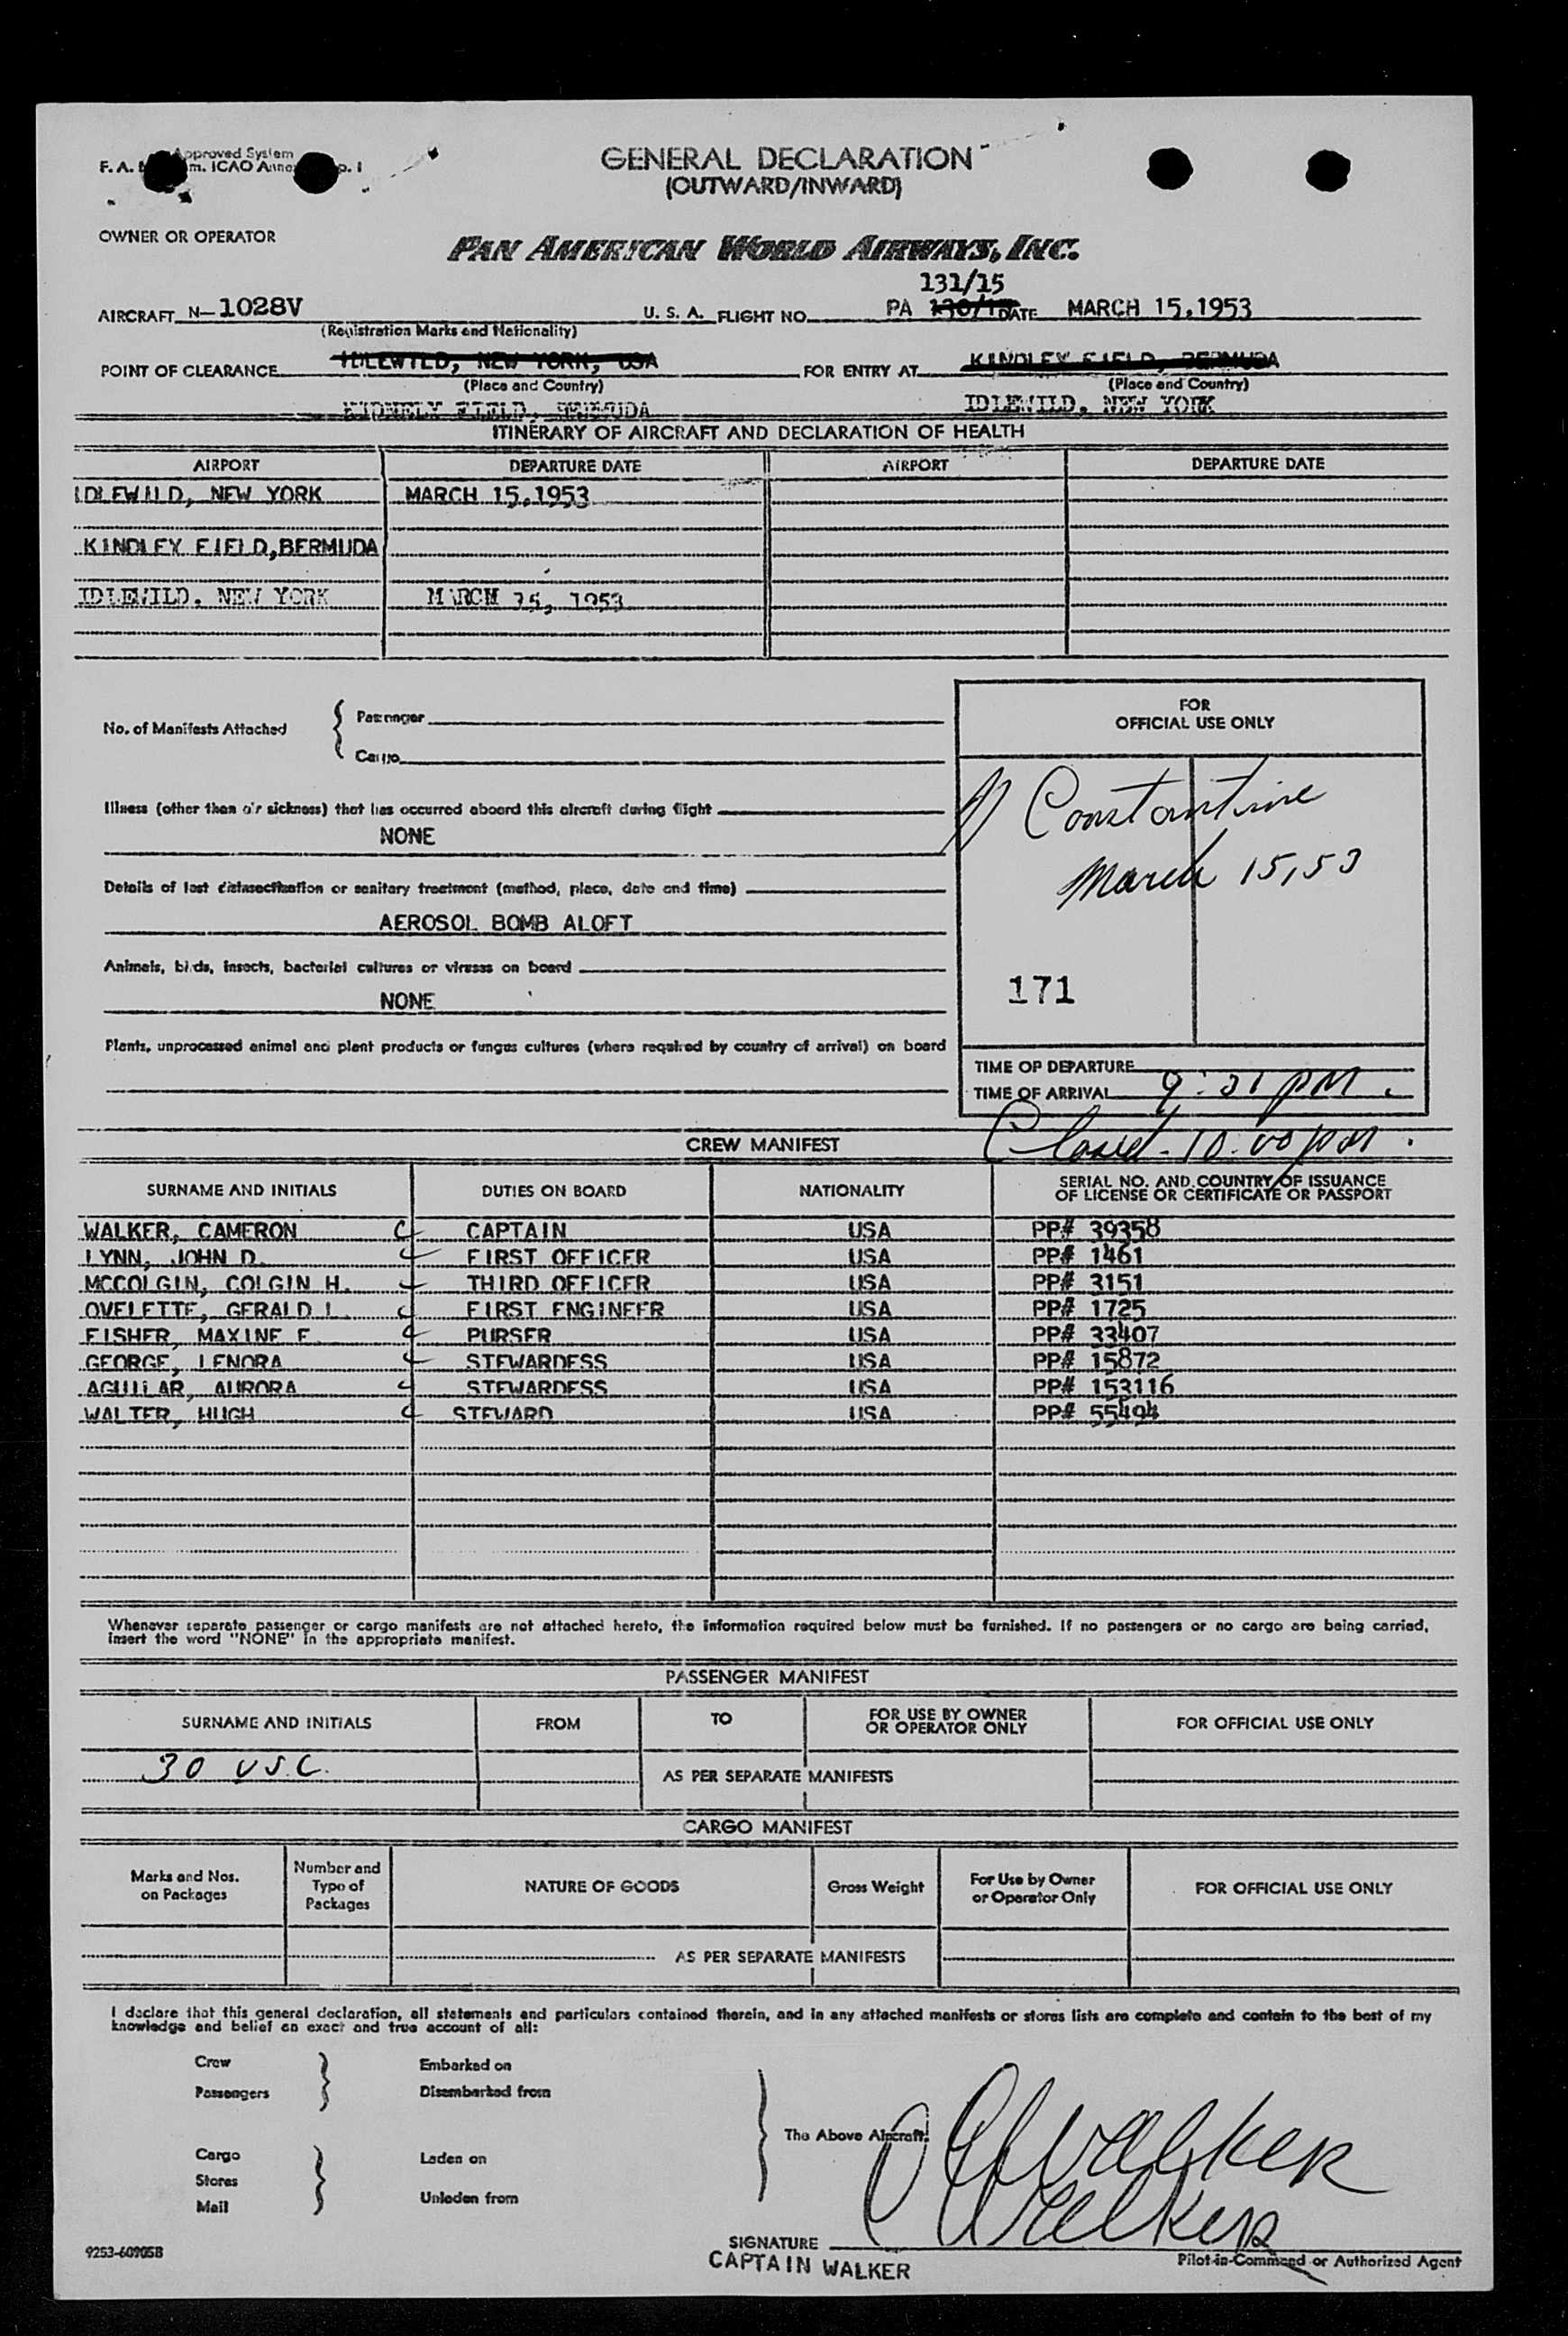 Approved System
F. A. m. ICAO Anne p. 1
GENERAL DECLARATION
(OUTWARD/INWARD)
OWNER OR OPERATOR
PAN AMERICAN WORLD AIRWAYS, INC.
131/15
AIRCRAFT N-1028V U. S. A. FLIGHT NO. PA DATE MARCH 15,1953
(Registration Marks and Nationality)
POINT OF CLEARANCE IDLEWILD, NEW YORK, USA FOR ENTRY AT KINDLEY FIELD, BERMUDA
(Place and Country) (Place and Country)
FIELD, BERMUDA IDLEWILD, NEW YORK
ITINERARY OF AIRCRAFT AND DECLARATION OF HEALTH
AIRPORT DEPARTURE DATE AIRPORT DEPARTURE DATE
IDLEWILD, NEW YORK MARCH 15,1953
KINDLEY FIELD,BERMUDA
IDLEWILD. NEW YORK MARCH 15, 1953
FOR
OFFICIAL USE ONLY
No. of Manifests Attached { Passenger
Cargo
Constantine
March 15, 53
Illness (other than air sickness) that has occurred aboard this aircraft during flight
NONE
Details of last disinsectization or sanitary treatment (method, place, date and time)
AEROSOL BOMB ALOFT
Animals, birds, insects, bacterial cultures or viruses on board
NONE
171
Plants, unprocessed animal and plant products or fungus cultures (where required by country of arrival) on board
TIME OF DEPARTURE
TIME OF ARRIVAL 9:31 PM.
Closed - 10:00 PM.
CREW MANIFEST
SURNAME AND INITIALS DUTIES ON BOARD NATIONALITY SERIAL NO. AND COUNTRY OF ISSUANCE
OF LICENSE OR CERTIFICATE OR PASSPORT
WALKER, CAMERON CAPTAIN USA PP# 39358
LYNN, JOHN D. FIRST OFFICER USA PP# 1461
MCCOLGIN, COLGIN H. THIRD OFFICER USA PP# 3151
OVELETTE, GERALD L. FIRST ENGINEER USA PP# 1725
FISHER, MAXINE E. PURSER USA PP# 33407
GEORGE, LENORA STEWARDESS USA PP# 15872
AGUILAR, AURORA STEWARDESS USA PP# 153116
WALTER, HUGH STEWARD USA PP# 55494
Whenever separate passenger or cargo manifests are not attached hereto, the information required below must be furnished. If no passengers or no cargo are being carried,
insert the word "NONE" in the appropriate manifest.
PASSENGER MANIFEST
SURNAME AND INITIALS FROM TO FOR USE BY OWNER
OR OPERATOR ONLY FOR OFFICIAL USE ONLY
30 U.S.C.
AS PER SEPARATE MANIFESTS
CARGO MANIFEST
Marks and Nos.
on Packages
Number and
Type of
Packages
NATURE OF GOODS
Gross Weight
For Use by Owner
or Operator Only
FOR OFFICIAL USE ONLY
AS PER SEPARATE MANIFESTS
I declare that this general declaration, all statements and particulars contained therein, and in any attached manifests or stores lists are complete and contain to the best of my
knowledge and belief an exact and true account of all:
Crew Embarked on
Passengers Disembarked from
The Above Aircraft.
Cargo Laden on
Stores
Mail Unladen from
Walker
Walker
SIGNATURE
CAPTAIN WALKER
Pilot-in-Command or Authorized Agent
9253-60905B